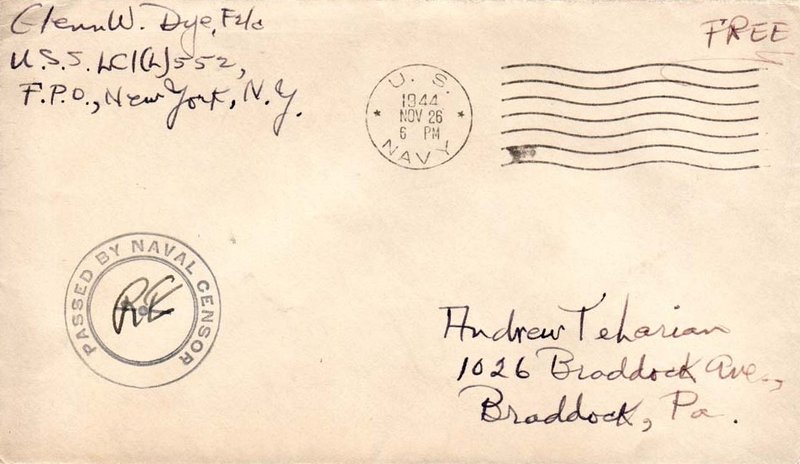 Glenn W. Dye, F2/c
U.S.S. LCI(L) 552,
F.P.O., New York, N.Y.
FREE
U. S.
1944
NOV 26
6 PM
NAVY
PASSED BY NAVAL CENSOR
RE
Andrew Teharian
1026 Braddock Ave.,
Braddock, Pa.